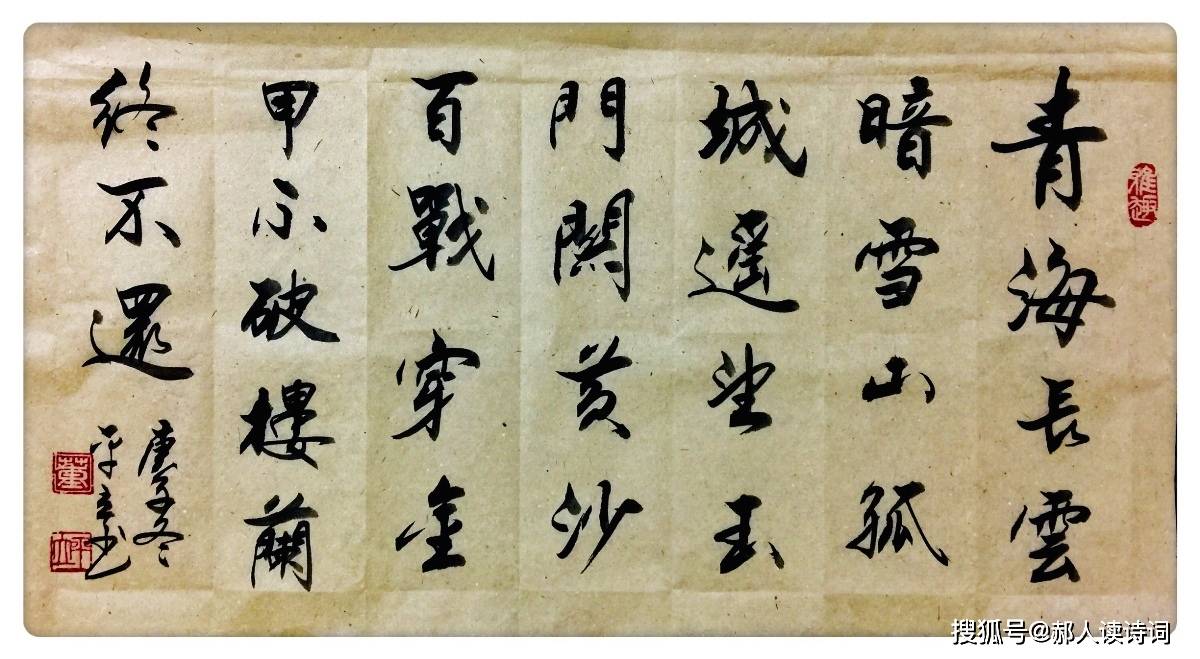 雅趣
青海長雲
暗雪山孤
城遙望玉
門關黄沙
百戰穿金
甲不破樓蘭
終不還
庚子冬
平立书
董
平立
搜狐号@郝人读诗词